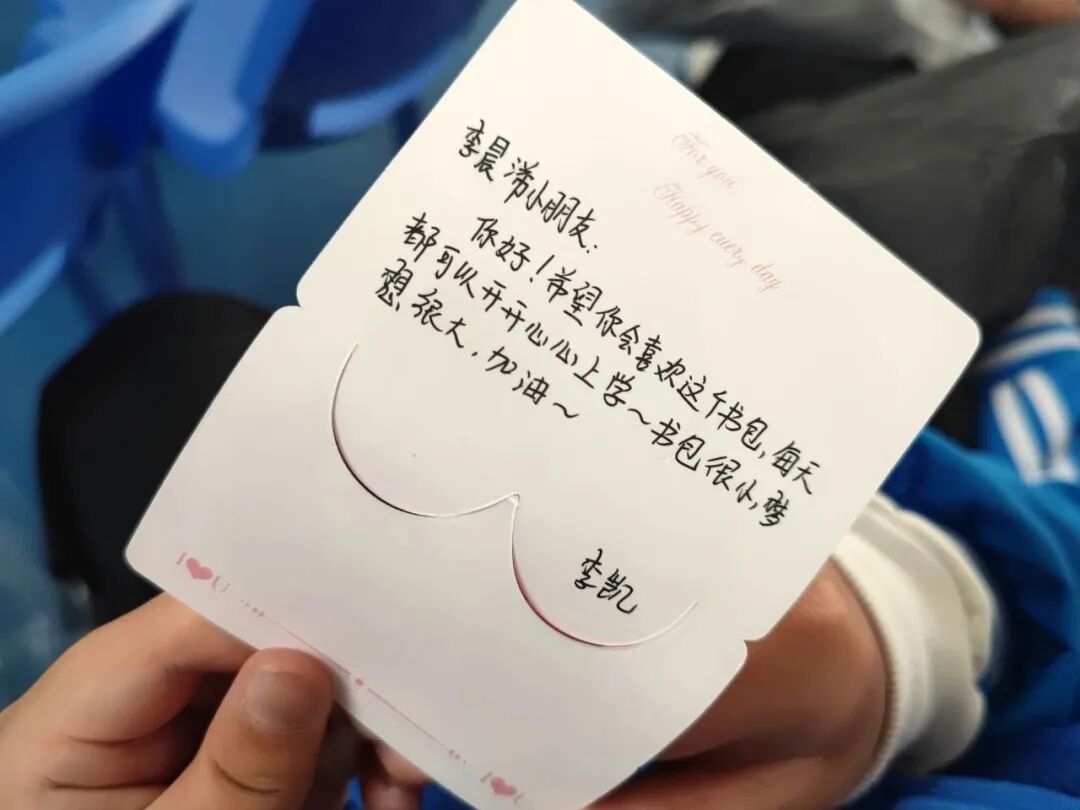 For you
Happy every day
李晨潇小朋友:
你好!希望你会喜欢这个书包,每天
都可以开开心心上学~书包很小,梦
想很大,加油~
李凯
I❤U
I❤U